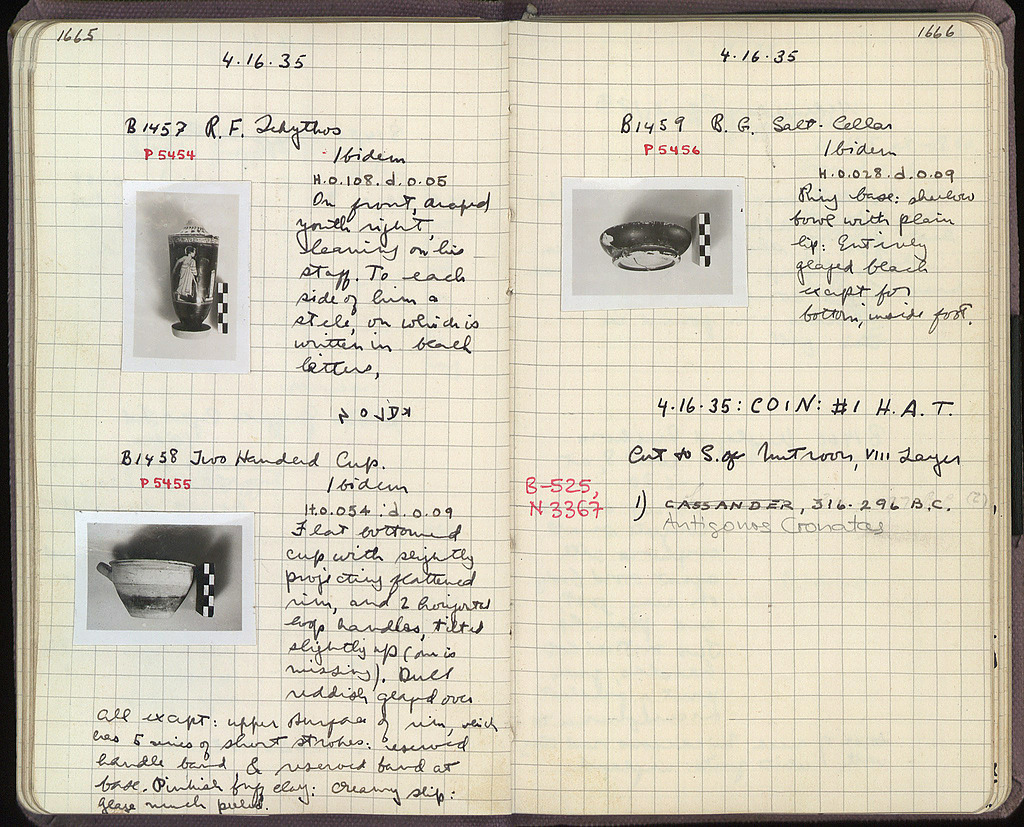 1665
4.16.35
B1457 R. F. Lekythos
P5454
Ibidem
H.0.108. d. 0.05
On front, draped
youth right,
leaning on his
staff. To each
side of him a
stele, on which is
written in black
letters,
B1458 Two Handled Cup.
P5455
Ibidem
H.0.054. d. 0.09
Flat bottomed
cup with slightly
projecting flattened
rim, and 2 horizontal
loop handles, tilted
slightly up (one is
missing). Dull
reddish glaze over
all except: upper surface of rim, which
has 5 series of short strokes: reserved
handle band & reserved band at
base. Pinkish buff clay: creamy slip:
glaze much peeled.
1666
4.16.35
B1459 B. G. Salt-Cellar
P5456
Ibidem
H.0.028. d. 0.09
Ring base: shallow
bowl with plain
lip: Entirely
glazed black
except for
bottom, inside foot.
4.16.35: COIN: #1 H.A.T.
Cut to S. of Mint room, VIII Layer
B-525,
N3367
1) CASSANDER, 316-296 B.C.
Antigonos Gonatas